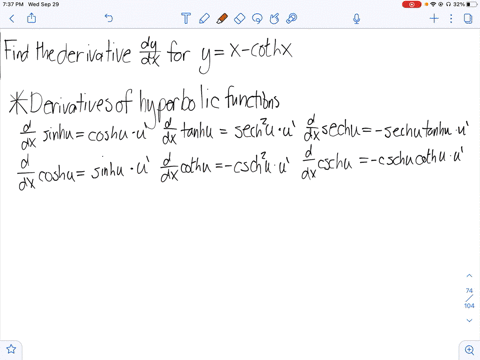 7:37 PM Wed Sep 29
32%
Find the derivative dy/dx for y = x - coth x
*Derivatives of hyperbolic functions
d/dx sinhu = coshu · u' d/dx tanhu = sech²u · u' d/dx sechu = -sechu tanhu · u'
d/dx coshu = sinhu · u' d/dx cothu = -csch²u · u' d/dx cschu = -cschu cothu · u'
74
/
104